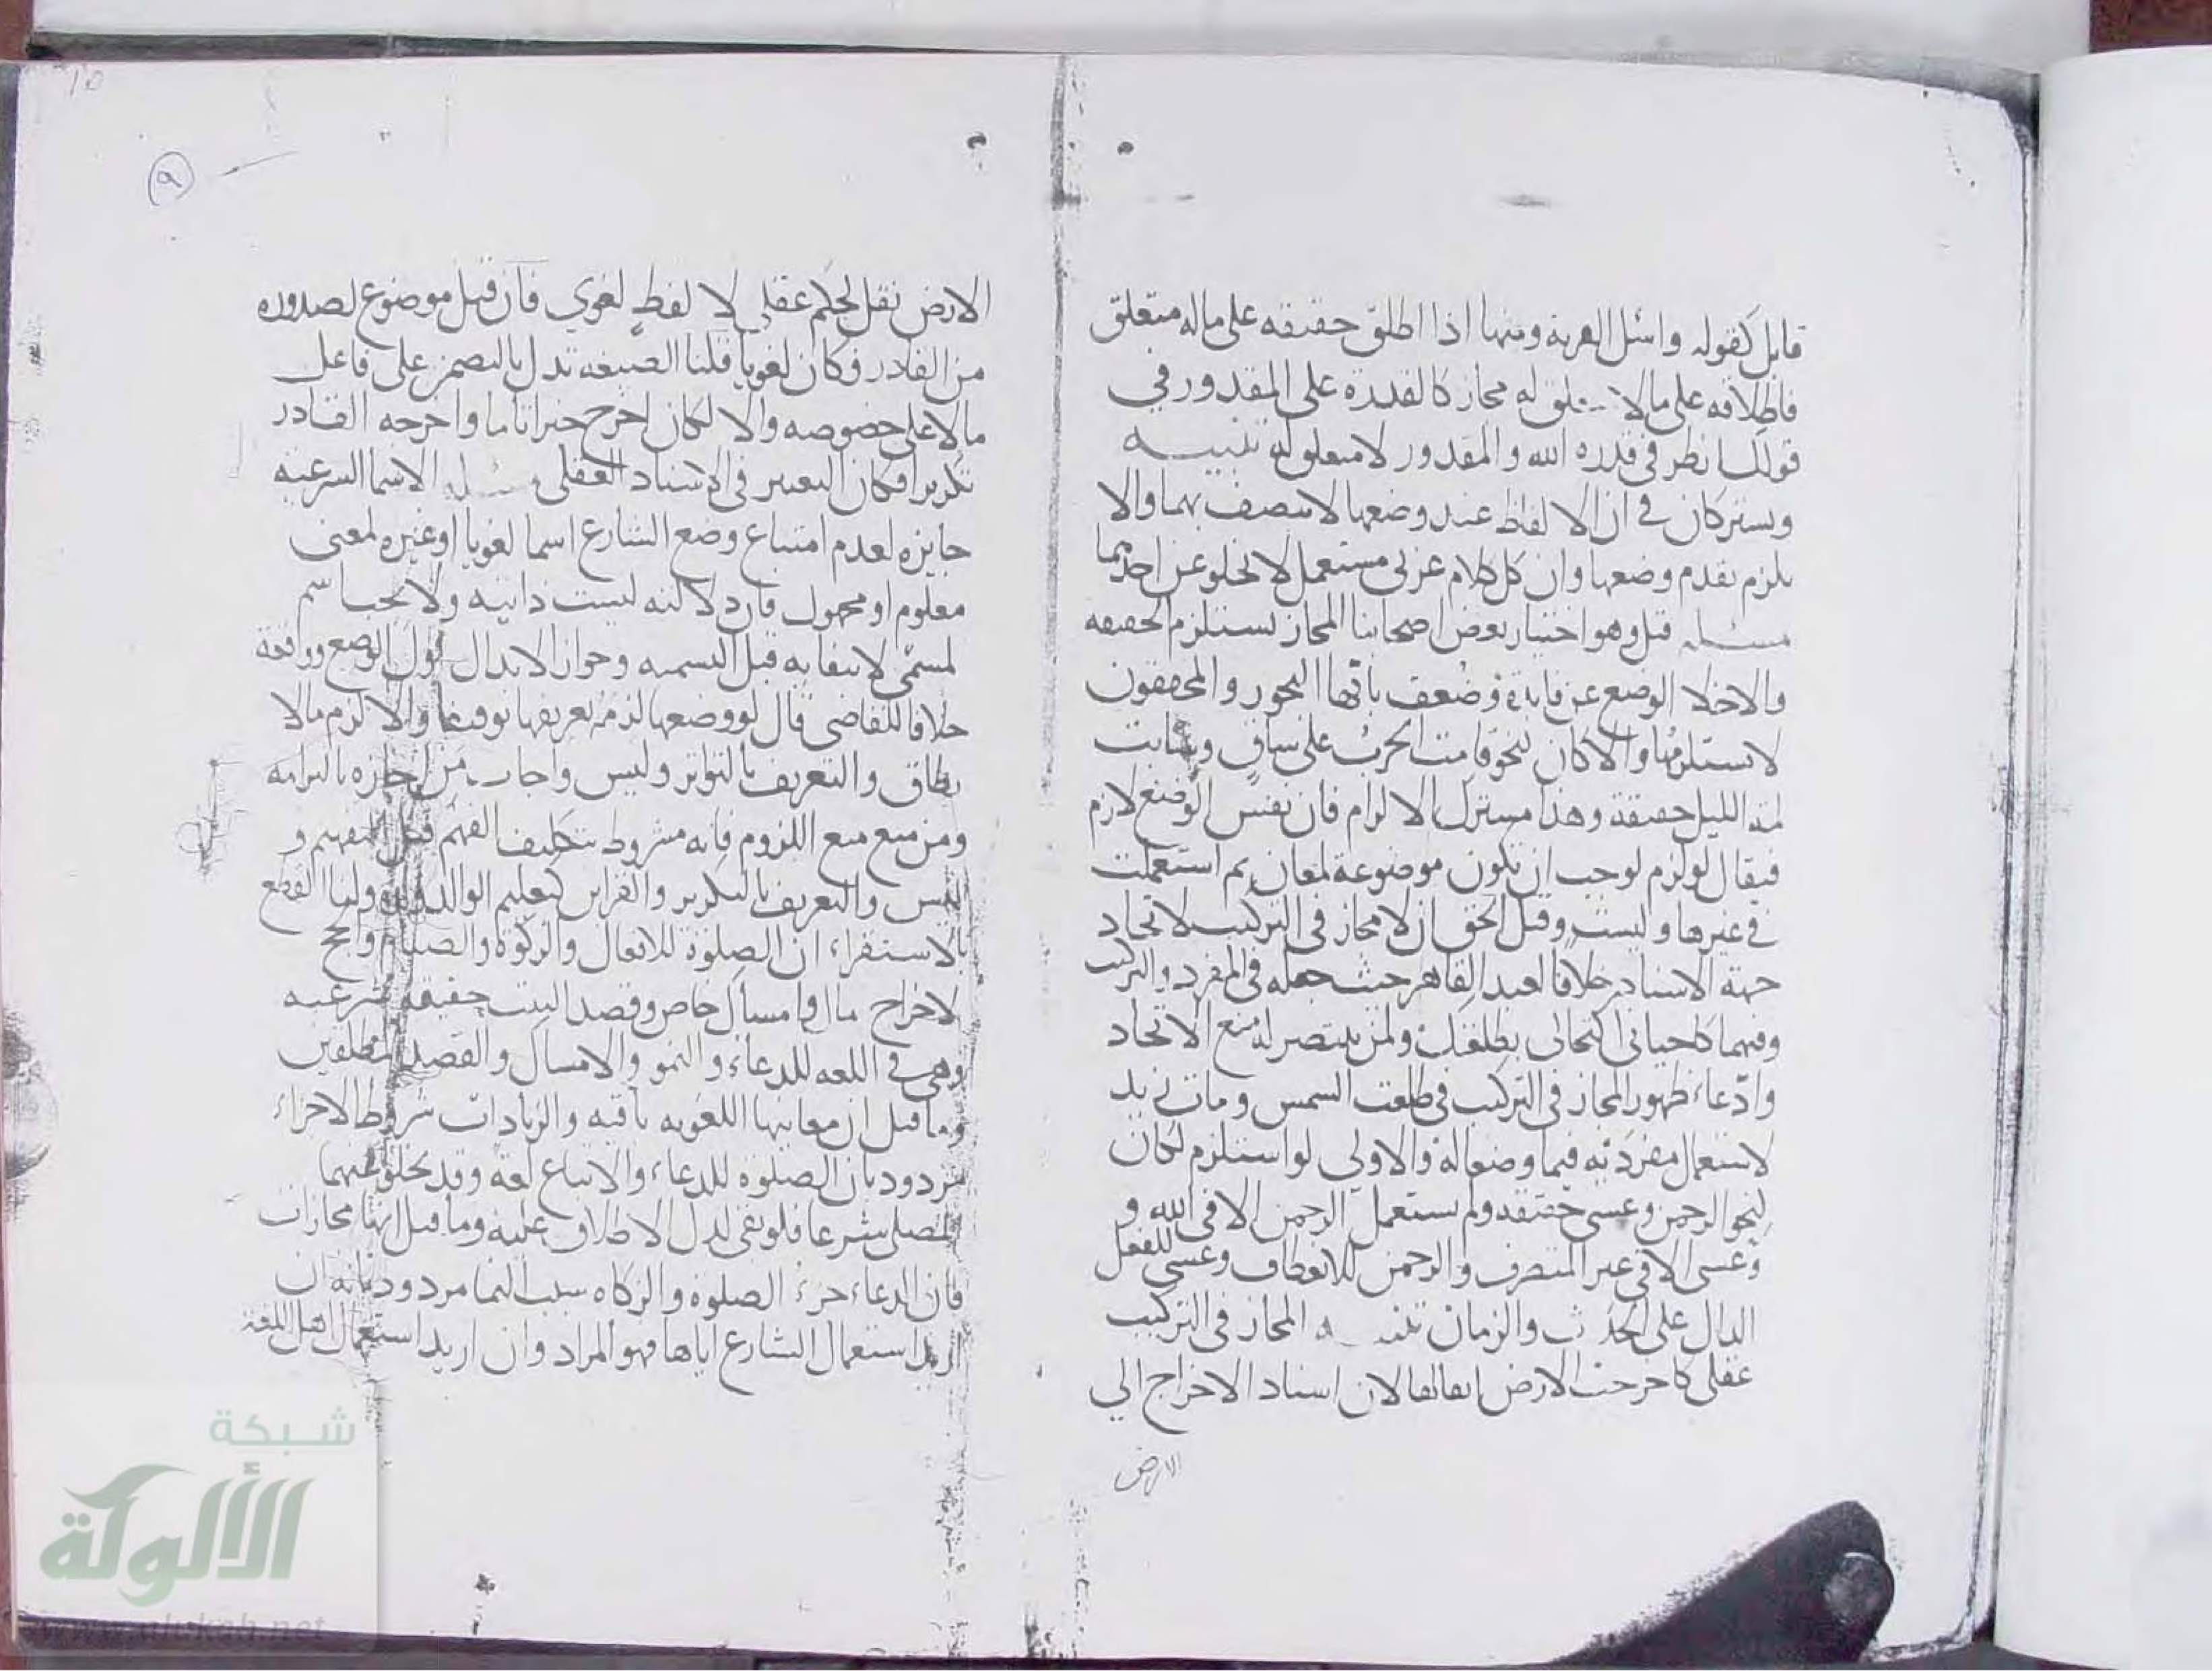 قابل كقوله واسئل القرية ومنها اذا اطلق حقيقه على ماله متعلق
فاطلاقه على مالا تعلق له مجاز كالقدرة على المقدور في
قولك انظر في قدره الله والمقدور لا متعلق له تنبيه
ويشتركان في ان الالفاظ عند وضعها لا تتصف بهما والا
يلزم تقدم وضعها وان كل كلام عربي مستعمل لا يخلو عن احدهما
مسئله قيل وهو اختيار بعض اصحابنا المجاز يستلزم الحقيقه
والا خلا الوضع عن فايدة وضعف بانها التجوز والمحققون
لا يستلزمها والا كان لنحو قامت الحرب على ساق وشابت
لمة الليل حقيقة وهذا مشترك الالزام فان نفس الوضع لازم
فيقال لو لزم لوجب ان تكون موضوعة لمعان ثم استعملت
في غيرها وليست وقيل الحق ان لا مجاز في التركيب لاتحاد
جهة الاسناد خلافا لعبد القاهر حيث جعله في المفرد والتركيب
وفيهما كاحياني اكتحالي بطلعتك ولمن ينتصر له منع الاتحاد
وادعاء ظهور المجاز في التركيب في طلعت الشمس ومات زيد
لاستعمال مفرديه فيما وضعا له والاولى لو استلزم لكان
لنحو الرحمن وعسى حقيقه ولم يستعمل الرحمن الا في الله و
وعسى الا في غير المتصرف والرحمن للانعطاف وعسى للفعل
الدال على الحدث والزمان تنبيه المجاز في التركيب
عقلي كاخرجت الارض اثقالها لان اسناد الاخراج الى
الارض
٩
الارض نقل لحكم عقلي لا لفظ لغوي فان قيل موضوع لصدوره
من القادر فكان لغويا قلنا الصيغه تدل بالتضمن على فاعل
ما لا على خصوصه والا لكان اخرج خبرا تاما واخرجه القادر
تكريرا فكان التغيير في الاسناد العقلي مسئله الاسما الشرعية
جايزه لعدم امتناع وضع الشارع اسما لغويا او غيره لمعنى
معلوم او مجهول فان دلالته ليست ذاتيه ولا يجب اسم
لمسمى لانتفايه قبل التسميه وجواز الابدال اول الوضع وواقعة
خلافا للقاضي قال لو وضعها لزمه تعريفها توقيفا والا لزم مالا
يطاق والتعريف بالتواتر وليس واجاب من اجازه بالتزامه
ومن منع منع اللزوم فانه مشروط بتكليف الفهم قبل التفهيم و
ليس والتعريف بالتكرير والقراين كتعليم الوالد ولده ولنا القطع
بالاستقراء ان الصلوة للافعال والزكوة والصيام والحج
لاخراج مال وامساك خاص وقصد البيت حقيقه شرعيه
وهي في اللغه للدعاء والنمو والامساك والقصد المطلقين
وما قيل ان معانيها اللغويه باقيه والزيادات شروط الاجزاء
مردود بان الصلوة للدعاء والاتباع لغة وقد يخلو عنهما
المصلي شرعا فلو بقي لدل الاطلاق عليه وما قيل انها مجازات
فان الدعاء جزء الصلوة والزكاه سبب النما مردود بانه ان
اريد استعمال الشارع اياها فهو المراد وان اريد استعمال اهل اللغة
شبكة
الألوكة
www.alukah.net